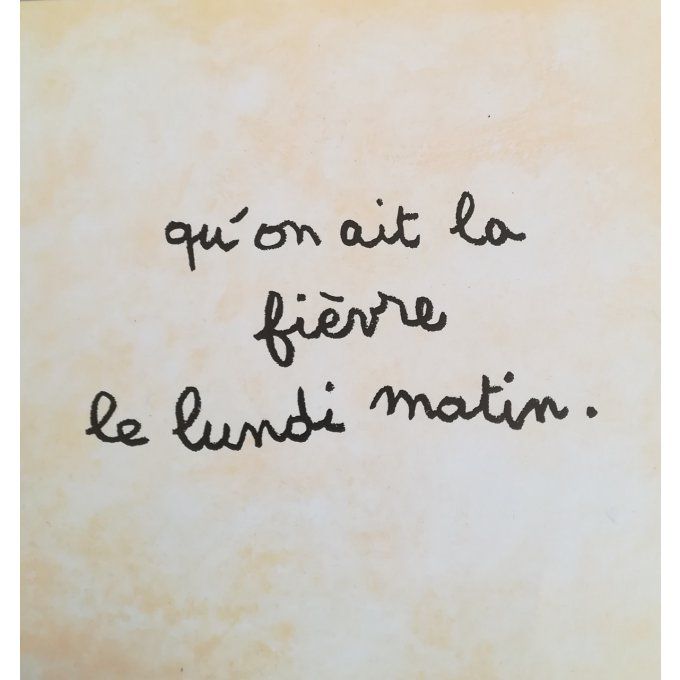 qu'on ait la
fièvre
le lundi matin.